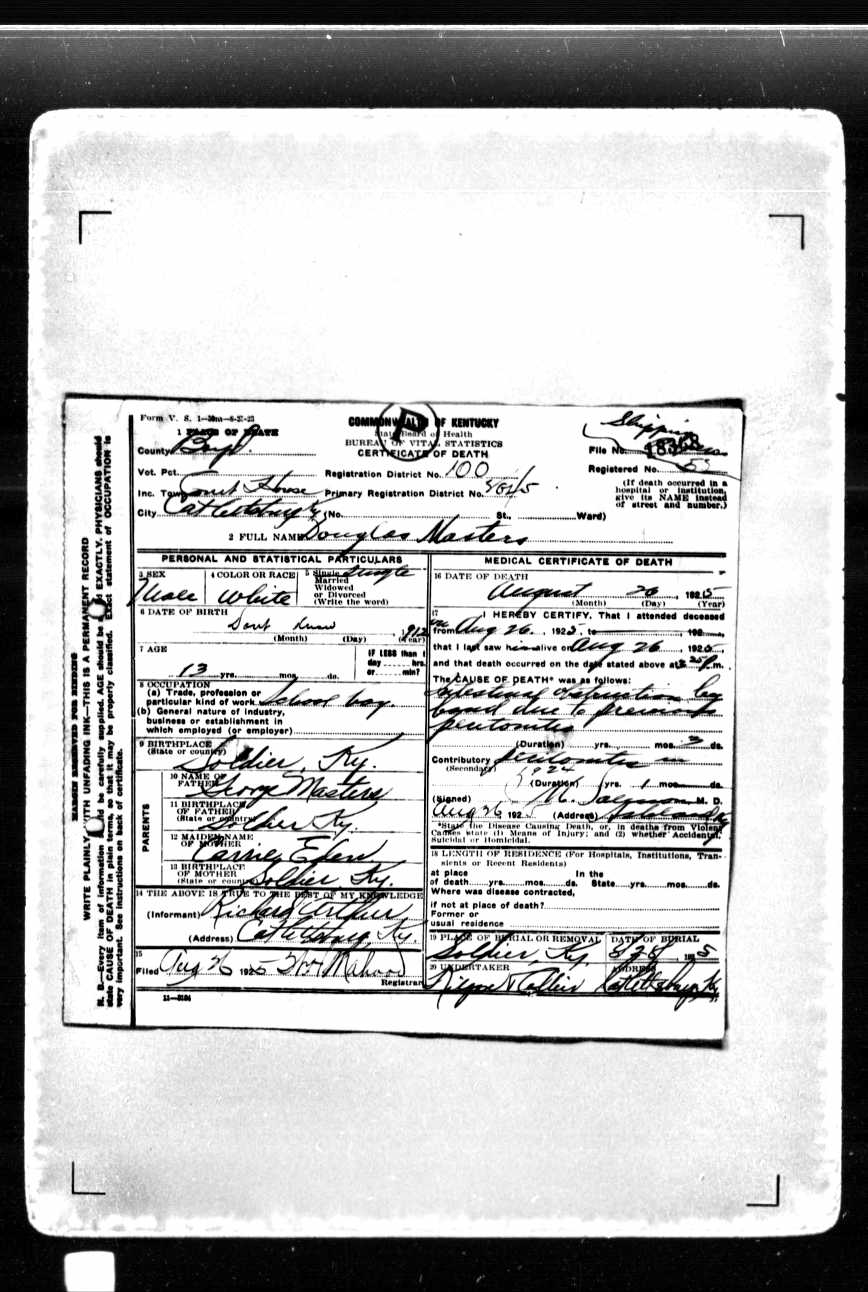 Form V. S. 1—50m—8-21-23
COMMONWEALTH OF KENTUCKY
State Board of Health
BUREAU OF VITAL STATISTICS
CERTIFICATE OF DEATH
1 PLACE OF DEATH
County Boyd.
Vot. Pct.
Inc. Town Court House
City Catlettsburg Ky (No. St., Ward)
Registration District No. 100
Primary Registration District No.
Shipping
File No. 18368
Registered No. 53
(If death occurred in a
hospital or institution,
give its NAME instead
of street and number.)
2 FULL NAME Douglas Masters
PERSONAL AND STATISTICAL PARTICULARS
3 SEX
Male
4 COLOR OR RACE
White
5 Single Single
Married
Widowed
or Divorced
(Write the word)
6 DATE OF BIRTH
Dont know, 1912
(Month) (Day) (Year)
7 AGE
13 yrs. mos. ds.
IF LESS than 1
day hrs.
or min?
8 OCCUPATION
(a) Trade, profession or
particular kind of work School boy.
(b) General nature of industry,
business or establishment in
which employed (or employer)
9 BIRTHPLACE
(State or country) Soldier, Ky.
PARENTS
10 NAME OF
FATHER George Masters
11 BIRTHPLACE
OF FATHER
(State or country) Soldier Ky.
12 MAIDEN NAME
OF MOTHER Eden
13 BIRTHPLACE
OF MOTHER
(State or country) Soldier Ky.
14 THE ABOVE IS TRUE TO THE BEST OF MY KNOWLEDGE
(Informant) Richard
(Address) Catlettsburg, Ky.
15
Filed Aug 26 1925
Registrar
11—3184
MEDICAL CERTIFICATE OF DEATH
16 DATE OF DEATH
August 26, 1925
(Month) (Day) (Year)
17 I HEREBY CERTIFY, That I attended deceased
from Aug 26, 1925, to , 192
that I last saw him alive on Aug 26, 1925
and that death occurred on the date stated above at m.
The CAUSE OF DEATH* was as follows:
Intestinal obstruction by
band due to previous
peritonitis
(Duration) yrs. mos. 3 ds.
Contributory peritonitis in
(Secondary) 1924
(Duration) yrs. 1 mos. ds.
(Signed) M. D.
Aug 26 1925 (Address)
*State the Disease Causing Death, or, in deaths from Violent
Causes state (1) Means of Injury; and (2) whether Accidental,
Suicidal or Homicidal.
18 LENGTH OF RESIDENCE (For Hospitals, Institutions, Tran-
sients or Recent Residents)
at place In the
of death yrs. mos. ds. State yrs. mos. ds.
Where was disease contracted,
if not at place of death?
Former or
usual residence
19 PLACE OF BURIAL OR REMOVAL
Soldier, Ky
DATE OF BURIAL
8/28/1925
20 UNDERTAKER
ADDRESS
Catlettsburg, Ky
MARGIN RESERVED FOR BINDING
WRITE PLAINLY WITH UNFADING INK—THIS IS A PERMANENT RECORD
N. B.—Every item of information be carefully supplied. AGE should be EXACTLY. PHYSICIANS should
state CAUSE OF DEATH in plain terms, so that it may be properly classified. Exact statement of OCCUPATION is
very important. See instructions on back of certificate.